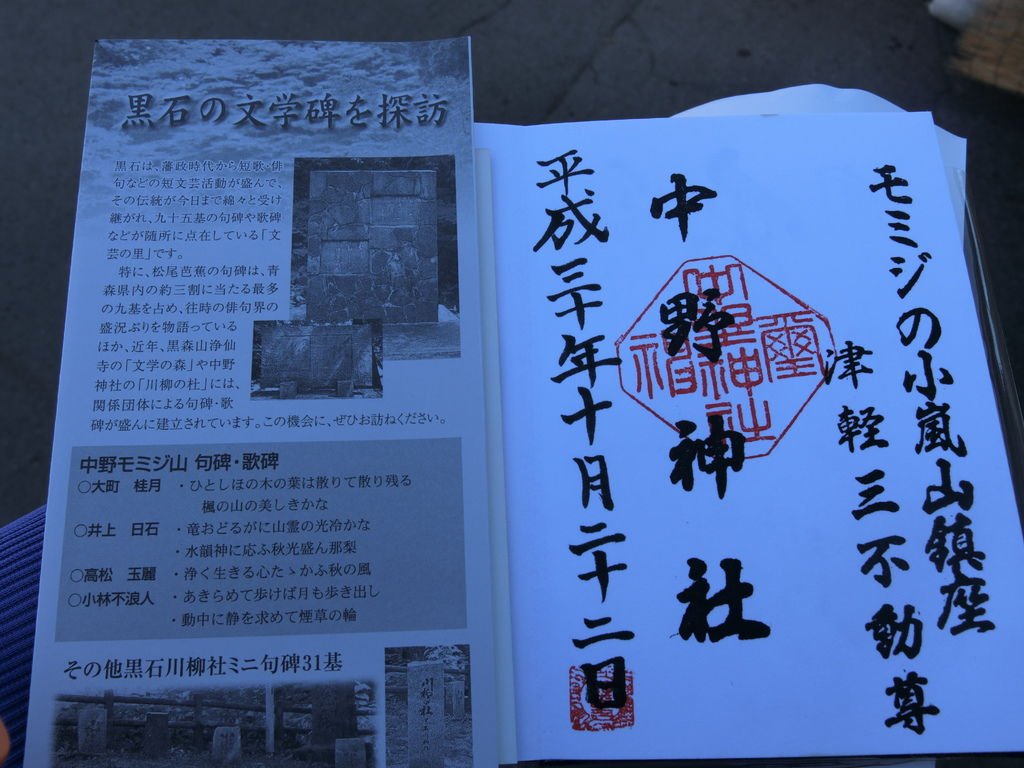 黒石の文学碑を探訪
黒石は、藩政時代から短歌・俳
句などの短文芸活動が盛んで、
その伝統が今日まで綿々と受け
継がれ、九十五基の句碑や歌碑
などが随所に点在している「文
芸の里」です。
特に、松尾芭蕉の句碑は、青
森県内の約三割に当たる最多
の九基を占め、往時の俳句界の
盛況ぶりを物語っている
ほか、近年、黒森山浄仙
寺の「文学の森」や中野
神社の「川柳の杜」には、
関係団体による句碑・歌
碑が盛んに建立されています。この機会に、ぜひお訪ねください。
中野モミジ山 句碑・歌碑
○大町 桂月 ・ひとしほの木の葉は散りて散り残る
楓の山の美しきかな
○井上 日石 ・竜おどるがに山霊の光冷かな
・水韻神に応ふ秋光盛ん那梨
○高松 玉麗 ・浄く生きる心たゝかふ秋の風
○小林不浪人 ・あきらめて歩けば月も歩き出し
・動中に静を求めて煙草の輪
その他黒石川柳社ミニ句碑31基
川柳の社
モミジの小嵐山鎮座
津軽三不動尊
中野神社
平成三十年十月二十二日